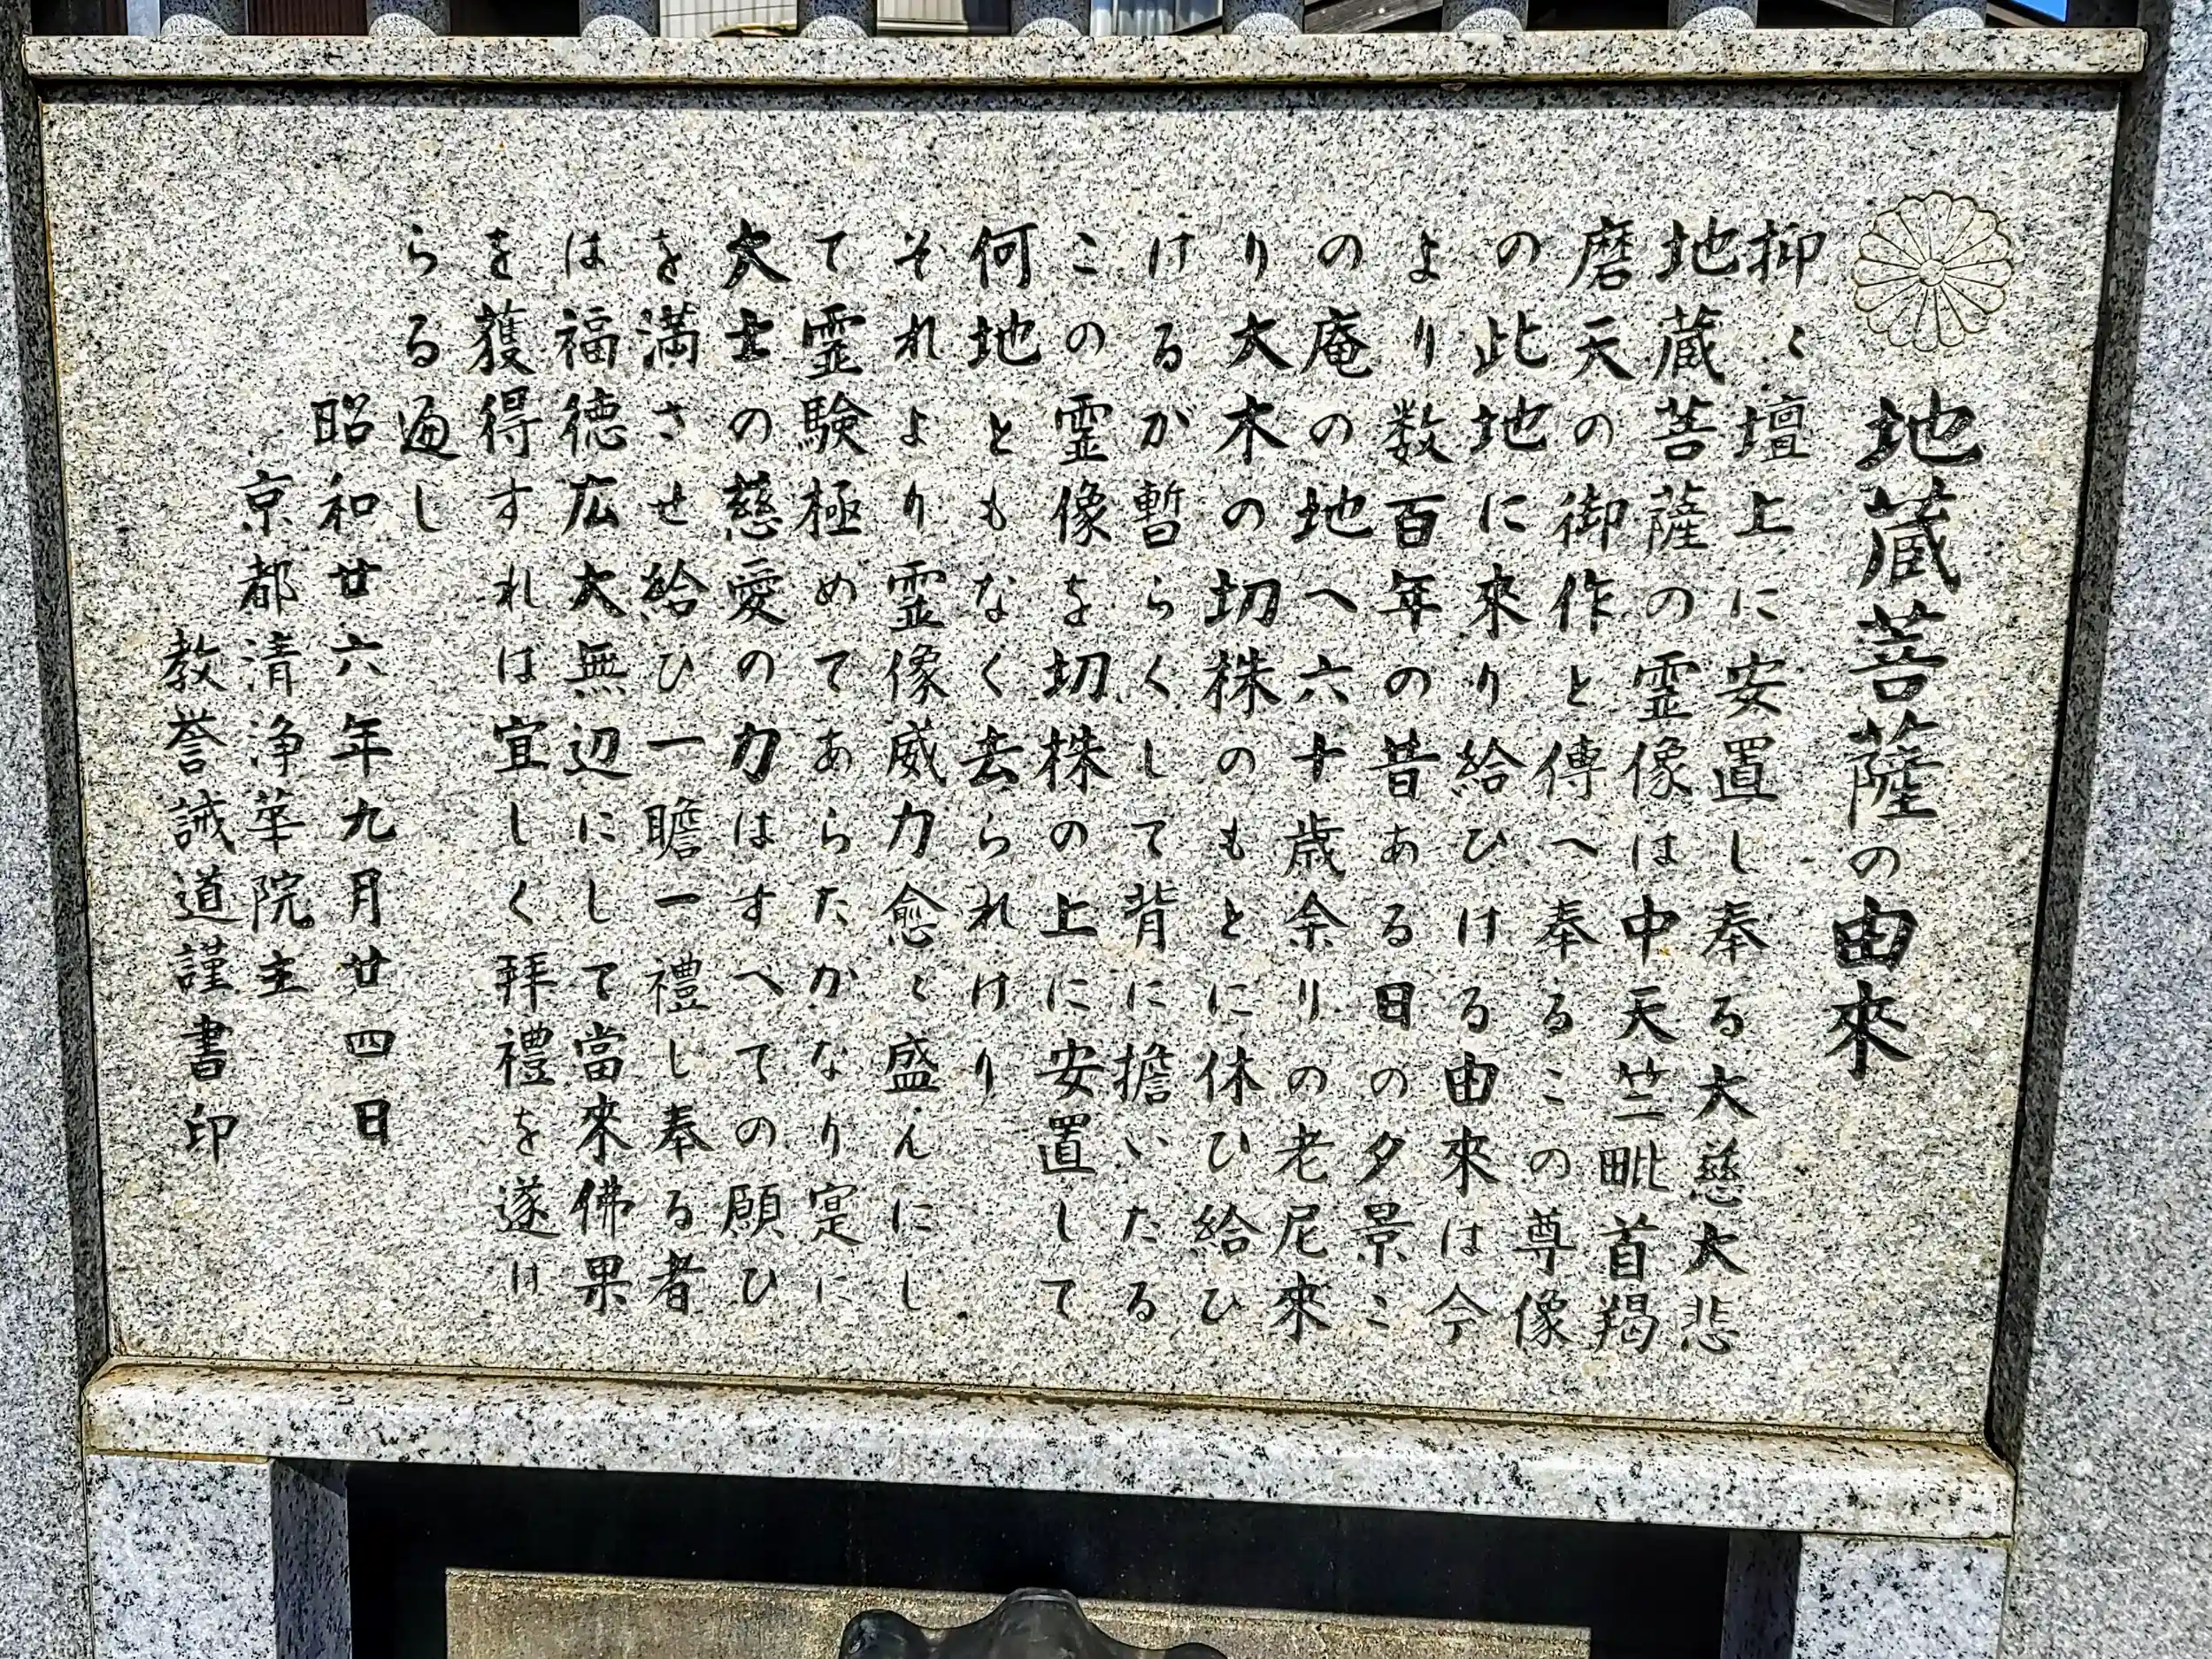 地蔵菩薩の由來
抑〻壇上に安置し奉る大慈大悲
地蔵菩薩の霊像は中天竺毗首羯
磨天の御作と傳へ奉るこの尊像
の此地に來り給ひける由來は今
より数百年の昔ある日の夕景こ
の庵の地へ六十歳余りの老尼來
り大木の切株のもとに休ひ給ひ
けるが暫らくして背に擔いたる
この霊像を切株の上に安置して
何地ともなく去られけり
それより霊像威力愈〻盛んにし
て霊験極めてあらたかなり寔に
大士の慈愛の力はすへての願ひ
を満させ給ひ一瞻一禮し奉る者
は福徳広大無辺にして當來佛果
を獲得すれは宜しく拝禮を遂け
らる遍し
昭和廿六年九月廿四日
京都清浄華院主
教誉誡道謹書印